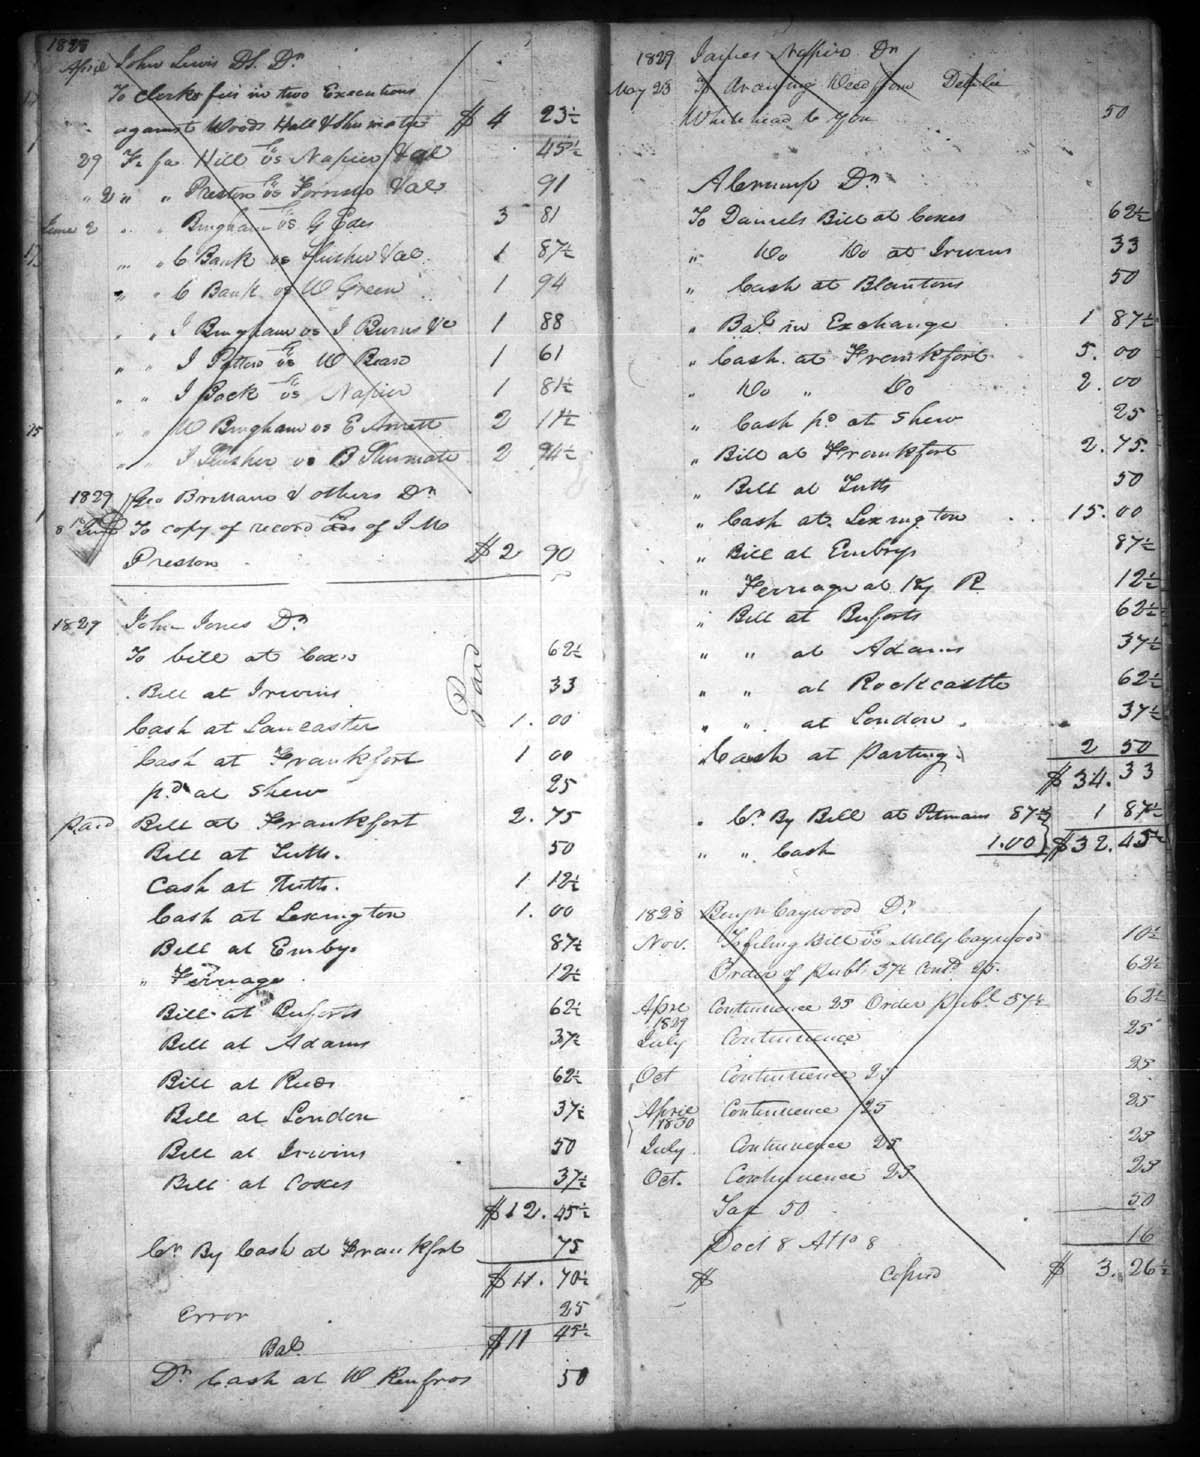 1828
April John Lewis DS. Dr
To clerks fees in two Executions
against Woods Hall & Shumate $ 4 23½
29 Fi fa Hill &c vs Napier Val 45½
" 2 " " Preston &c vs Forriss Val 91
June 2 " " Bingham &c vs G Edes 3 81
17 " " C Bank vs Slusher Val 1 87½
" " C Bank vs W Green 1 94
" " J Bingham vs J Burns Vc 1 88
" " J Patton &c vs W Beard 1 61
" " J Bock &c vs Napier 1 81½
25 " " W Bingham vs E Arnett 2 11½
" " J Slusher vs B Shumate 2 94½
1829 Geo Brittains & others Dr
8 To copy of record &c of J M
Preston $2 90
1829 John Jones Dr
To bill at Cox's 62½
Bill at Irwins 33
Paid
Cash at Lancaster 1. 00
Cash at Frankfort 1 00
pd at Shew 25
paid Bill at Frankfort 2. 75
Bill at Tutts. 50
Cash at Tutts. 1 12½
Cash at Lexington 1. 00
Bill at Embys 87½
" Ferriage 12½
Bill at Bufords 62½
Bill at Adams 37½
Bill at Rices 62½
Bill at London 37½
Bill at Irwins 50
Bill at Coxes 37½
$12. 45½
Cr By Cash at Frankfort 75
$11. 70½
Error 25
Bal. $11 45½
Dr Cash at W Renfros 50
1829 James Napier Dr
May 23 To Drawing Deed from Delilia
Whitehead to you 50
A Crump Dr
To Daniels Bill at Coxes 62½
" Do Do at Irwins 33
" Cash at Blantons 50
" Bal in Exchange 1 87½
" Cash at Frankfort 5. 00
" Do " Do 2. 00
" Cash pd at Shew 25
" Bill at Frankfort 2. 75.
" Bill at Tutts 50
" Cash at Lexington 15. 00
" Bill at Embrys 87½
" Ferriage at Ky R 12½
" Bill at Bufords 62½
" " at Adams 37½
" " at Rockcastle 62½
" " at London 37½
" Cash at parting 2 50
$34. 33
" Cr By Bill at Pitmans 87½ 1 87½
" " Cash 1.00 $32. 45½
1828 Benjn Caywood Dr
Nov. To filing Bill &c vs Milly Caywood 10½
Order of publ 37½ Cont 25. 62½
April 1829 Continuence 25 Order publ 37½ 62½
July Continuence 25
Oct Continuence 25 25
April 1830 Continuence 25 25
July Continuence 25 25
Oct. Continuence 25 25
Tax 50 50
Doct 8 Atto 8 16
$ Copied $ 3. 26½